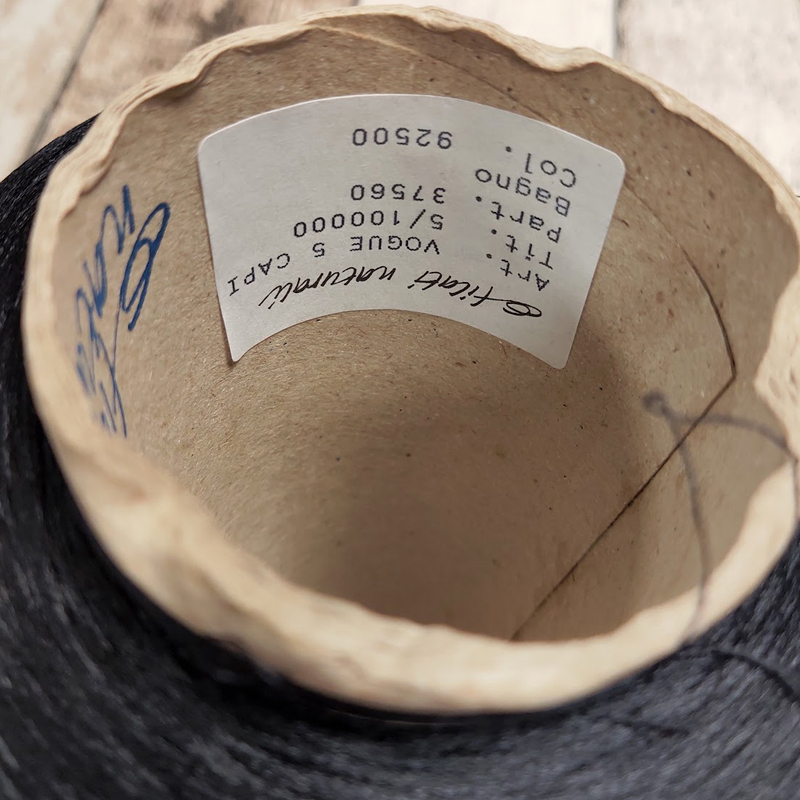 filati naturali
Art. VOGUE 5 CAPI
Tit. 5/100000
Part. 37560
Bagno
Col. 92500